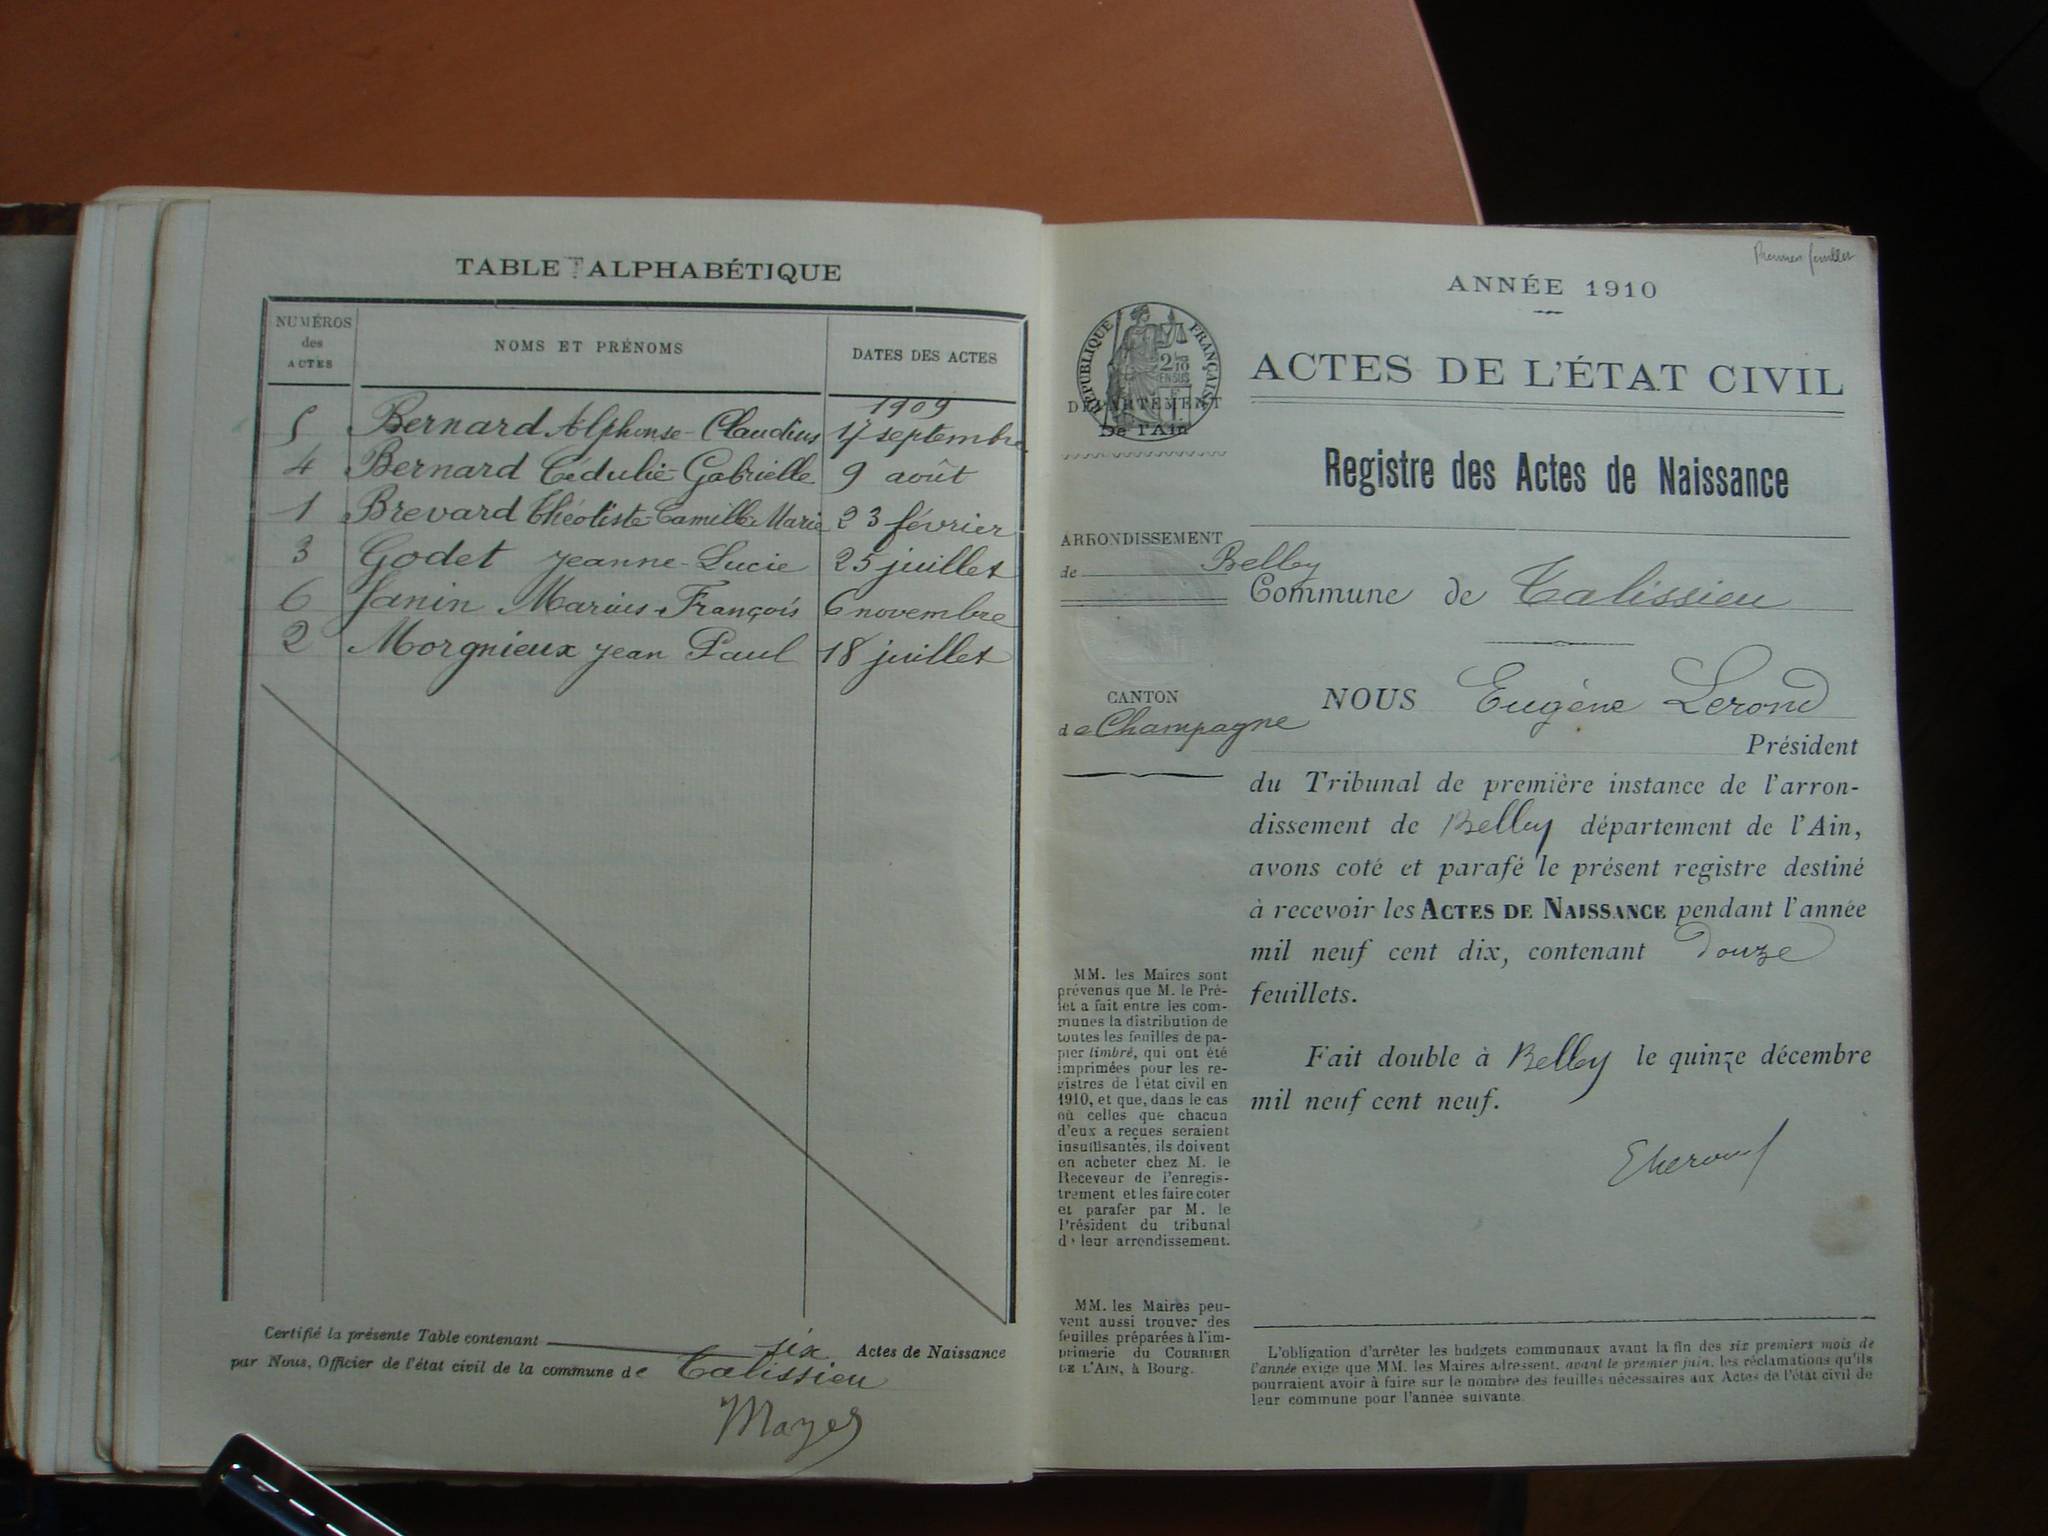 TABLE ALPHABÉTIQUE
NUMÉROS des ACTES
NOMS ET PRÉNOMS
DATES DES ACTES
1909
5 Bernard Alphonse-Claudius 17 septembre
4 Bernard Cédulie-Gabrielle 9 août
1 Brevard Théotiste-Camille-Marie 23 février
3 Godet Jeanne-Lucie 25 juillet
6 Janin Marius-François 6 novembre
2 Morgnieux Jean Paul 18 juillet
Certifié la présente Table contenant six Actes de Naissance
par Nous, Officier de l'état civil de la commune de Talissieu
Premier feuillet
ANNÉE 1910
RÉPUBLIQUE FRANÇAISE
2/10
EN SUS
DÉPARTEMENT
De l'Ain
ARRONDISSEMENT
de Belley
CANTON
de Champagne
MM. les Maires sont
prévenus que M. le Pré-
fet a fait entre les com-
munes la distribution de
toutes les feuilles de pa-
pier timbré, qui ont été
imprimées pour les re-
gistres de l'état civil en
1910, et que, dans le cas
où celles que chacun
d'eux a reçues seraient
insuffisantes, ils doivent
en acheter chez M. le
Receveur de l'enregis-
trement et les faire coter
et parafer par M. le
Président du tribunal
de leur arrondissement.
MM. les Maires peu-
vent aussi trouver des
feuilles préparées à l'im-
primerie du COURRIER
DE L'AIN, à Bourg.
ACTES DE L'ÉTAT CIVIL
Registre des Actes de Naissance
Commune de Talissieu
NOUS Eugène Lerond
Président
du Tribunal de première instance de l'arron-
dissement de Belley département de l'Ain,
avons coté et parafé le présent registre destiné
à recevoir les ACTES DE NAISSANCE pendant l'année
mil neuf cent dix, contenant Douze
feuillets.
Fait double à Belley le quinze décembre
mil neuf cent neuf.
L'obligation d'arrêter les budgets communaux avant la fin des six premiers mois de
l'année exige que MM. les Maires adressent, avant le premier juin, les réclamations qu'ils
pourraient avoir à faire sur le nombre des feuilles nécessaires aux Actes de l'état civil de
leur commune pour l'année suivante.